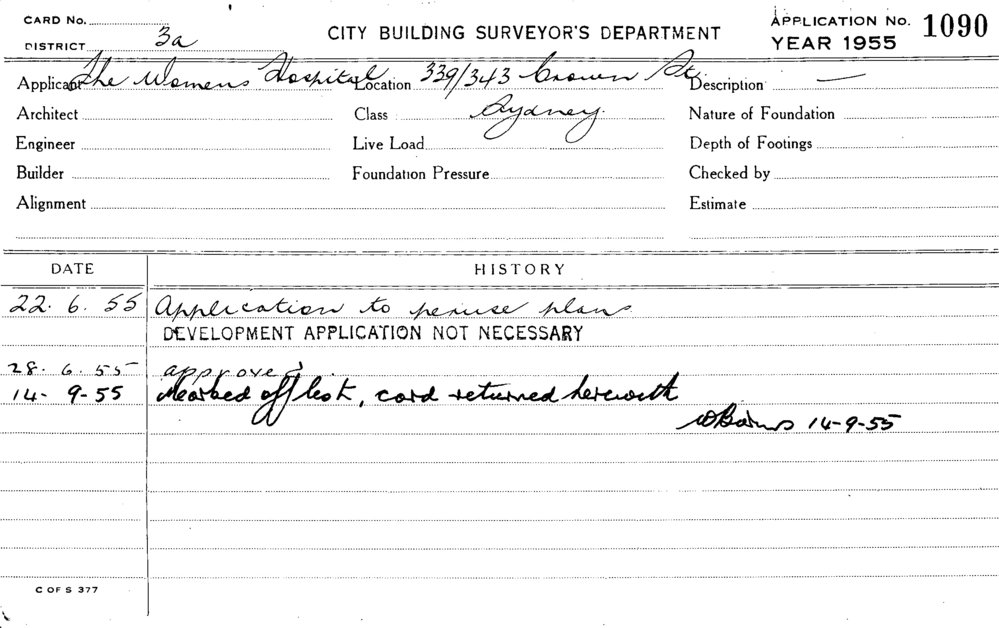 CARD No.
DISTRICT 3a
CITY BUILDING SURVEYOR'S DEPARTMENT
APPLICATION No. 1090
YEAR 1955
Applicant The Womens Hospital Location 339/343 Crown St. Description —
Architect Class Sydney. Nature of Foundation
Engineer Live Load Depth of Footings
Builder Foundation Pressure Checked by
Alignment Estimate
DATE HISTORY
22. 6. 55 Application to peruse plans
DEVELOPMENT APPLICATION NOT NECESSARY
28. 6. 55 approved
14- 9-55 Marked off list, card returned herewith
14-9-55
C OF S 377